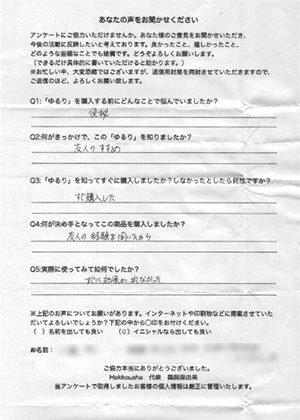 あなたの声をお聞かせください
アンケートにご協力いただけませんか。あなた様のご意見をお聞かせいただき、
今後の活動に反映したいと考えております。良かったこと、嬉しかったこと、
どのような些細なことでも結構です。どうぞよろしくお願いします。
(できるだけ具体的に書いていただけると助かります。)
※お忙しい中、大変恐縮ではございますが、返信用封筒を同封させていただきますので、
ご返信のほど、よろしくお願いいたします。
Q1:「ゆるり」を購入する前にどんなことで悩んでいましたか?
便秘
Q2:何がきっかけで、この「ゆるり」を知りましたか?
友人のすすめ
Q3:「ゆるり」を知ってすぐに購入しましたか?しなかったとしたら何故ですか?
すぐ購入した
Q4:何が決め手となってこの商品を購入しましたか?
友人の経験を聞いたから
Q5:実際に使ってみて如何でしたか?
すぐに効果が出なかった
※上記のお声についてお願いがあります。インターネットや印刷物などに掲載させていた
だいてよろしいでしょうか?下記の中から〇印をお付けください。
( )名前を出しても良い (〇)イニシャルなら出しても良い
お名前:
ご協力本当にありがとうございました。
Hakkousha 代表
当アンケートで取得しましたお客様の個人情報は厳正に管理いたします。